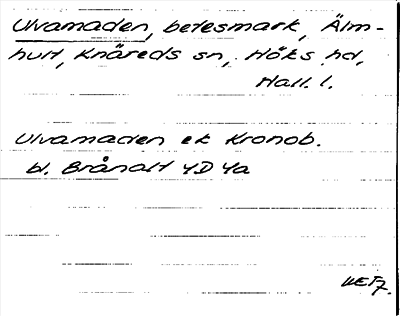 Ulvamaden, betesmark, Älm-
hult, Knäreds sn, Höks hd,
Hall. l.
Ulvamaden ek Kronob.
bl. Brånalt 4D 4a